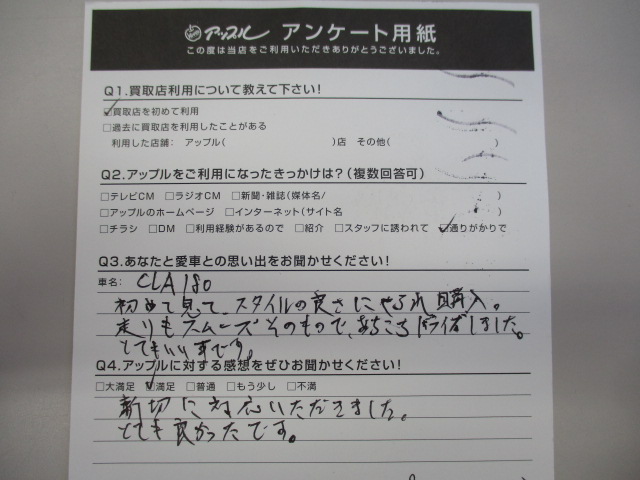 アップル アンケート用紙
この度は当店をご利用いただきありがとうございました。
Q1.買取店利用について教えて下さい!
☑買取店を初めて利用
□過去に買取店を利用したことがある
利用した店舗: アップル( )店 その他( )
Q2.アップルをご利用になったきっかけは?(複数回答可)
□テレビCM □ラジオCM □新聞・雑誌(媒体名/ )
□アップルのホームページ □インターネット(サイト名 )
□チラシ □DM □利用経験があるので □紹介 □スタッフに誘われて ☑通りがかりで
Q3.あなたと愛車との思い出をお聞かせください!
車名: CLA180
初めて見て、スタイルの良さにやられ購入。
走りもスムーズそのもので、あちこちドライブしました。
とてもいい車です。
Q4.アップルに対する感想をぜひお聞かせください!
□大満足 ☑満足 □普通 □もう少し □不満
親切に対応いただきました。
とても良かったです。